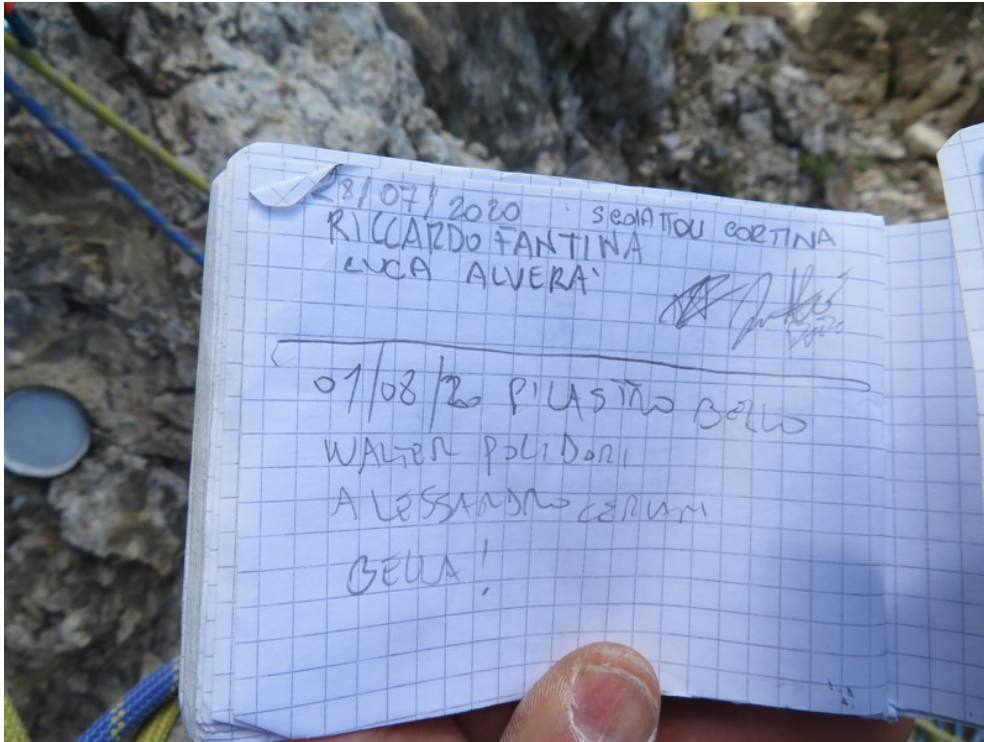 28/07/2020 SCOIATTOLI CORTINA
RICCARDO FANTINA
LUCA ALVERA'
2020
01/08/20 PILASTRO BELLO
WALTER POLIDORI
ALESSANDRO CERUNI
BELLA!